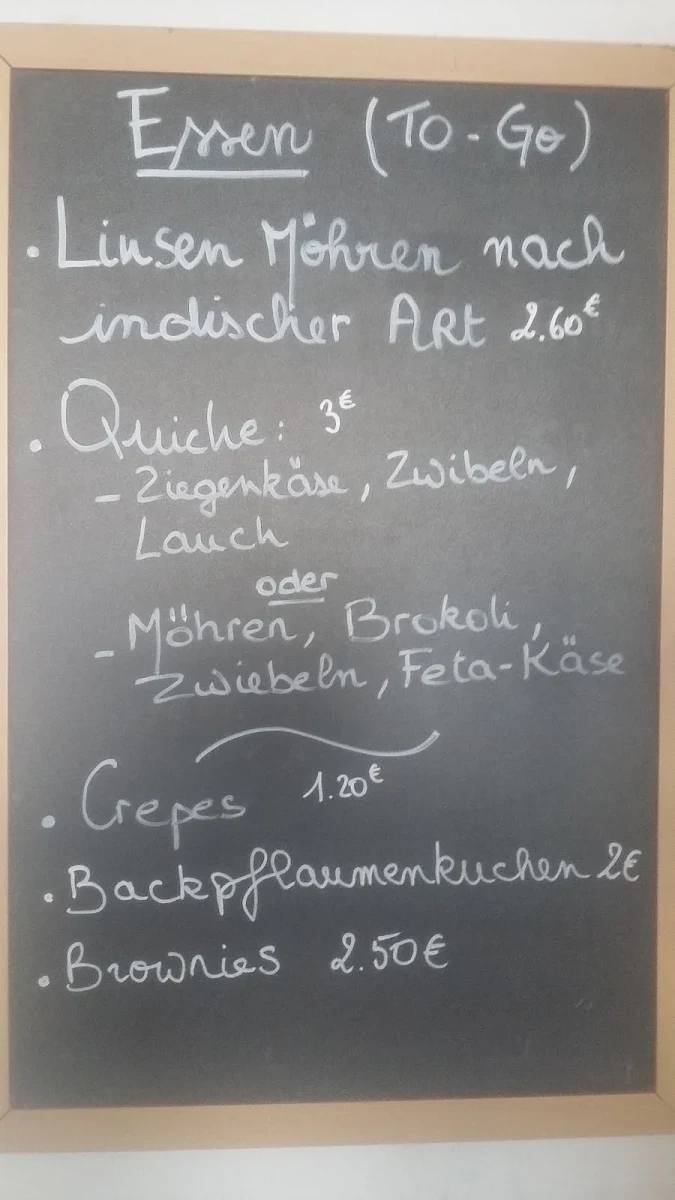 Essen (TO-GO)
· Linsen Möhren nach
indischer ARt 2.60€
· Quiche: 3€
- Ziegenkäse, Zwibeln,
Lauch
oder
- Möhren, Brokoli,
Zwiebeln, Feta-Käse
· Crepes 1.20€
· Backpflaumenkuchen 2€
· Brownies 2.50€